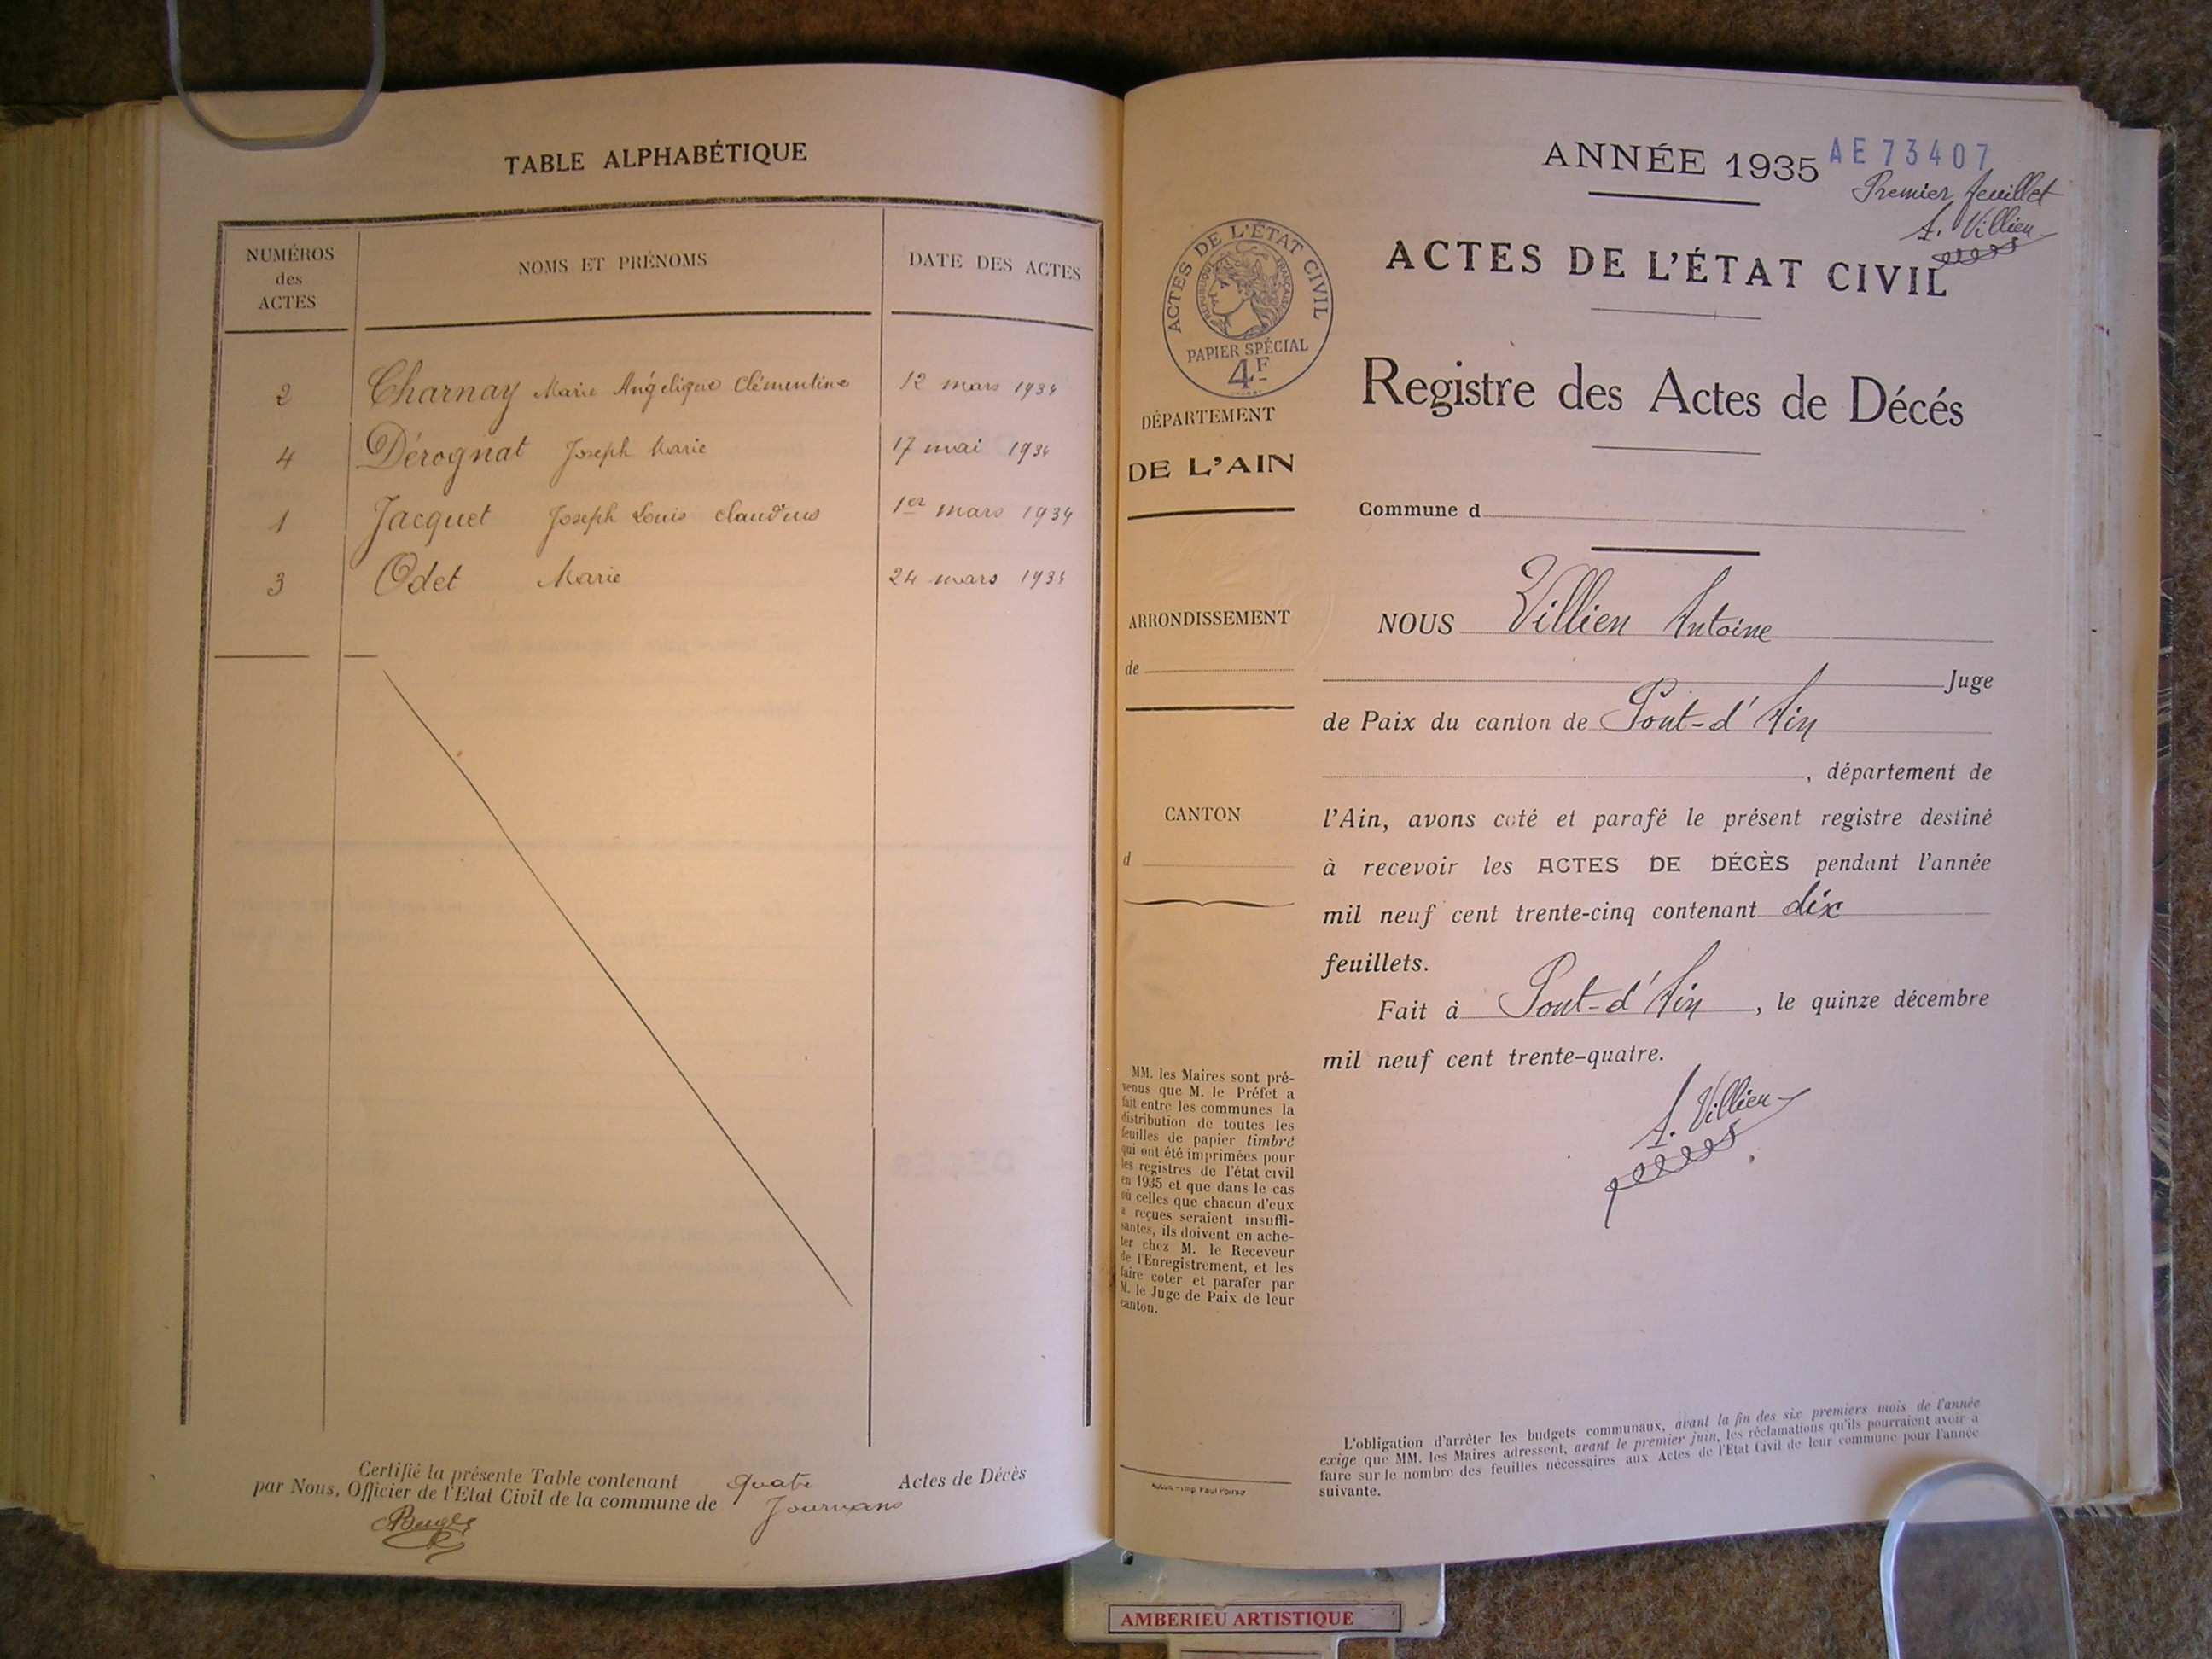 TABLE ALPHABÉTIQUE
NUMÉROS
des
ACTES
NOMS ET PRÉNOMS
DATE DES ACTES
2 Charnay Marie Angélique Clémentine 12 mars 1934
4 Dérognat Joseph Marie 17 mai 1934
1 Jacquet Joseph Louis Claudius 1er mars 1934
3 Odet Marie 24 mars 1934
Certifié la présente Table contenant quatre Actes de Décès
par Nous, Officier de l'Etat Civil de la commune de Journans
ANNÉE 1935
AE73407
Premier feuillet
A. Villien
ACTES DE L'ÉTAT CIVIL
Registre des Actes de Décés
ACTES DE L'ÉTAT CIVIL
RÉPUBLIQUE FRANÇAISE
PAPIER SPÉCIAL
4F
DÉPARTEMENT
DE L'AIN
ARRONDISSEMENT
de
CANTON
d
MM. les Maires sont pré-
venus que M. le Préfet a
fait entre les communes la
distribution de toutes les
feuilles de papier timbré
qui ont été imprimées pour
les registres de l'état civil
en 1935 et que dans le cas
où celles que chacun d'eux
a reçues seraient insuffi-
santes, ils doivent en ache-
ter chez M. le Receveur
de l'Enregistrement, et les
faire coter et parafer par
M. le Juge de Paix de leur
canton.
Commune d
NOUS Villien Antoine
Juge
de Paix du canton de Pont-d'Ain
, département de
l'Ain, avons coté et parafé le présent registre destiné
à recevoir les ACTES DE DÉCÈS pendant l'année
mil neuf cent trente-cinq contenant dix
feuillets.
Fait à Pont-d'Ain, le quinze décembre
mil neuf cent trente-quatre.
A. Villien
L'obligation d'arrêter les budgets communaux, avant la fin des six premiers mois de l'année
exige que MM. les Maires adressent, avant le premier juin, les réclamations qu'ils pourraient avoir à
faire sur le nombre des feuilles nécessaires aux Actes de l'Etat Civil de leur commune pour l'année
suivante.
AMBERIEU ARTISTIQUE